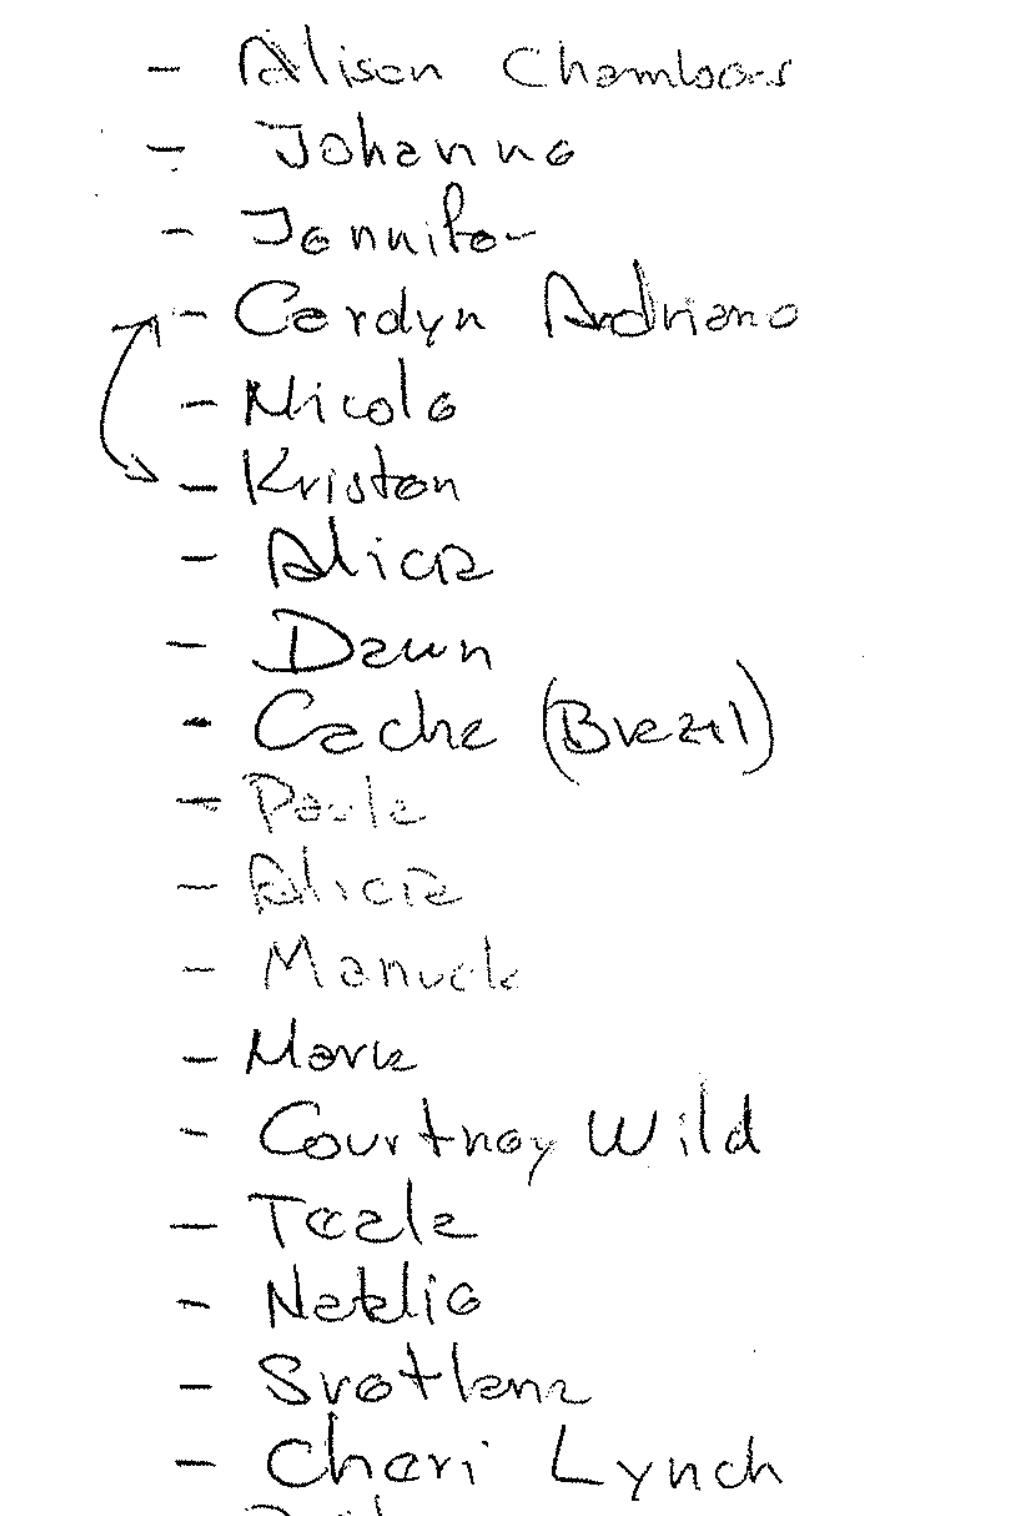 - Alison Chambers
- Johanna
- Jennifer
- Carolyn Andriano
- Nicole
- Kristen
- Alicia
- Dawn
- Cacha (Brazil)
- Paula
- Alicia
- Manuela
- Courtney Wild
- Teala
- Natalie
- Svetlana
- Cheri Lynch